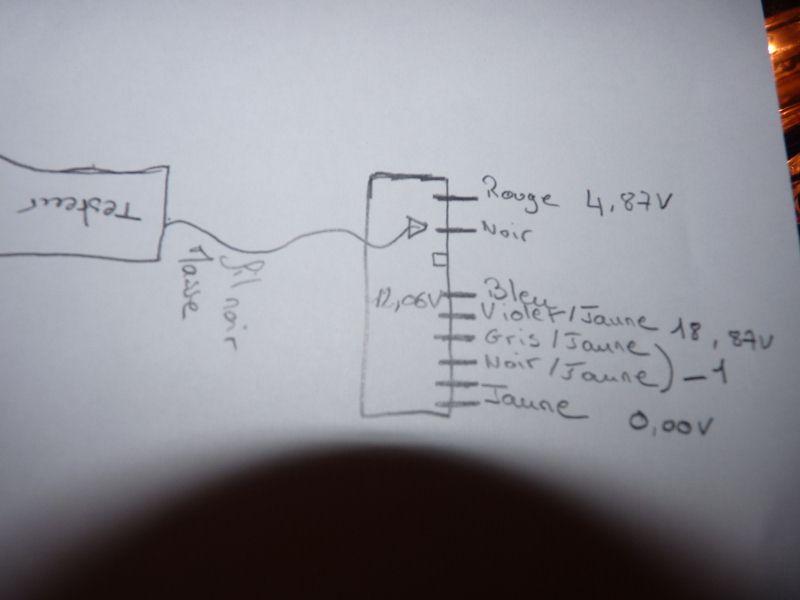 Testeur
fil noir
Masse
Rouge 4,87V
Noir
12,06V
Bleu
Violet/Jaune 18,87V
Gris/Jaune
Noir/Jaune ) -1
Jaune 0,00V